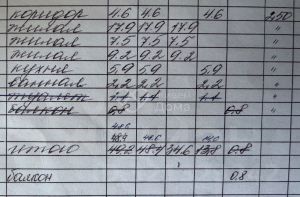 коридор 4.6 4.6 4.6 2,50
жилая 17.9 17.9 17.9 "
жилая 7.5 7.5 7.5 "
жилая 9.2 9.2 9.2 "
кухня 5.9 5.9 5.9 "
ванная 2,2 2,2 2,2 "
туалет 1.1 1.1 1.1 "
балкон 0.8 0.8 "
48.4
итого 49.2 48.4 34.6 13,8 0.8
балкон 0.8